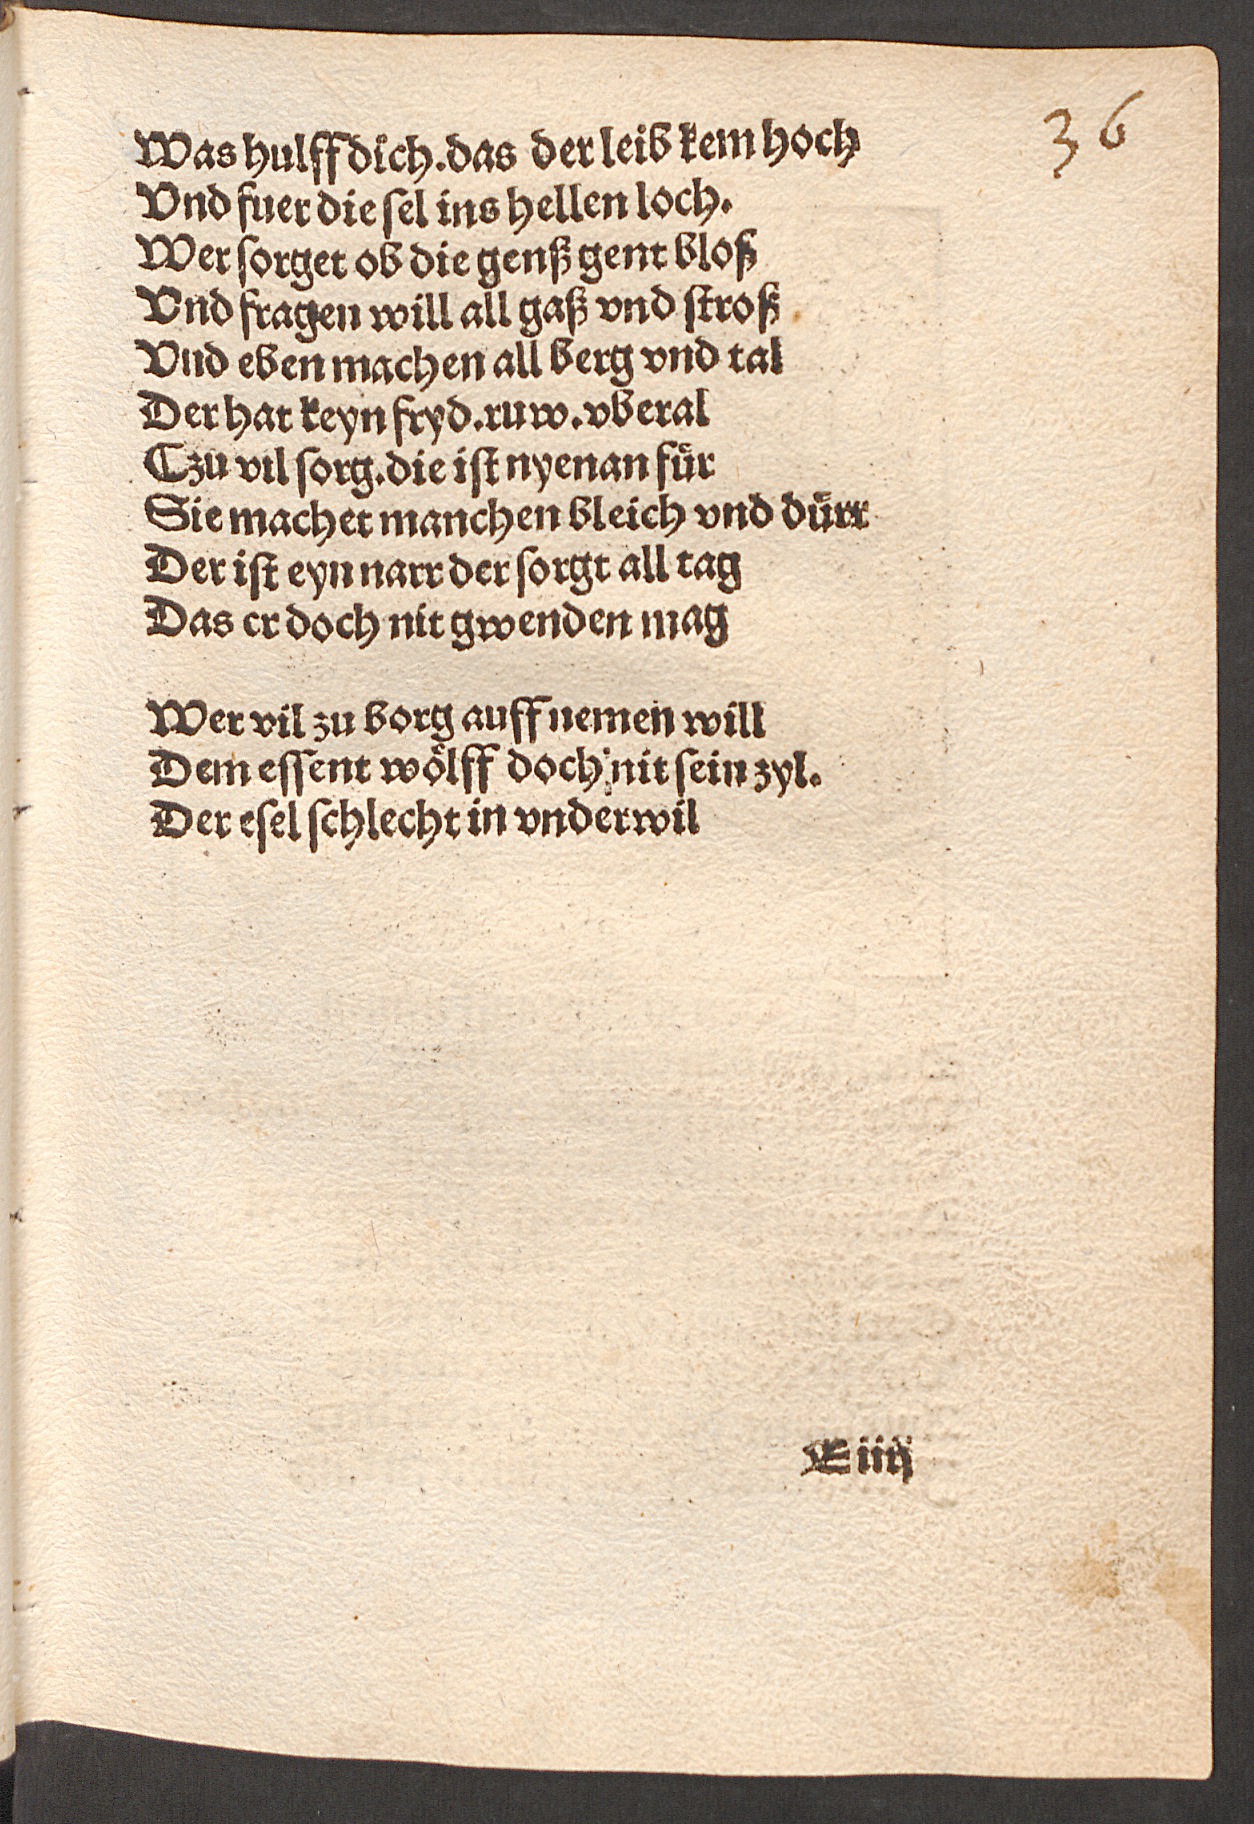 36
Was hulff dich. das der leib kem hoch
Vnd fuer die sel ins hellen loch.
Wer sorget ob die genß gent bloß
Vnd fragen will all gaß vnd stroß
Vnd eben machen all berg vnd tal
Der hat keyn fryd. ruw. vberal
Czu vil sorg. die ist nyenan fuͤr
Sie machet manchen bleich vnd duͤrr
Der ist eyn narr der sorgt all tag
Das er doch nit gwenden mag
Wer vil zu borg auff nemen will
Dem essent woͤlff doch nit sein zyl.
Der esel schlecht in vnderwil
E iiij